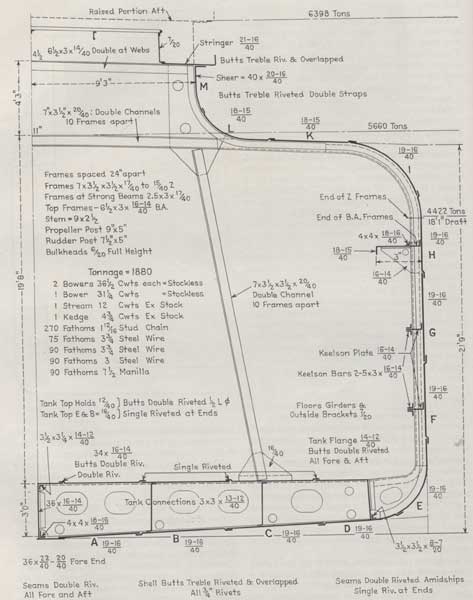 Raised Portion Aft
6398 Tons
7/20
Stringer 21-16/40
4 1/2 6 1/2 x 3 x 14/40 Double at Webs
Butts Treble Riv. & Overlapped
9'3"
Sheer = 40 x 20-16/40
M
4'3"
Butts Treble Riveted Double Straps
7" x 3 1/2" x 20/40: Double Channels
10 Frames apart
18-15/40
L
18-15/40
K
5660 Tons
11"
19-16/40
Frames spaced 24" apart
Frames 7 x 3 1/2 x 3 1/2 x 17/40 to 15/40 Z
Frames at Strong Beams 2.5 x 3 x 17/40
Top Frames - 6 1/2 x 3 x 16-14/40 B.A.
Stem = 9 x 2 1/2
Propeller Post 9" x 5"
Rudder Post 7 1/2" x 5"
Bulkheads 6/20 Full Height
End of Z Frames
End of B.A. Frames
4422 Tons
18'1" Draft
4 x 4 x 18-16/40
19-16/40
H
18-15/40
3"
16-14/40
19'8"
Tonnage = 1880
2 Bowers 36 1/2 Cwts each = Stockless
1 Bower 31 1/4 Cwts = Stockless
1 Stream 12 Cwts Ex Stock
1 Kedge 4 3/4 Cwts Ex Stock
270 Fathoms 1 12/16 Stud Chain
75 Fathoms 3 3/4 Steel Wire
90 Fathoms 3 3/4 Steel Wire
90 Fathoms 3 Steel Wire
90 Fathoms 7 1/2 Manilla
7 x 3 1/2 x 3 1/2 x 20/40
Double Channel
10 Frames apart
19-16/40
G
21'9"
Keelson Plate 16-14/40
Keelson Bars 2-5 x 3 x 16-14/40
19-16/40
Floors Girders &
Outside Brackets 1/20
F
Tank Top Holds 12/40 Butts Double Riveted 1/2 L
Tank Top E & B = 16/40 Single Riveted at Ends
3 1/2 x 3 1/4 x 14-12/40
34 x 16-14/40
Butts Double Riv.
Double Riv.
Single Riveted
16/40
Tank Flange 14-12/40
Butts Double Riveted
All Fore & Aft
3'0"
36 x 16-14/40
Tank Connections 3 x 3 x 13-12/40
4 x 4 x 18-16/40
19-16/40
E
A
19-16/40
B
19-16/40
C
19-16/40
D
19-16/40
3 1/2 x 3 1/2 x 8-7/20
36 x 22/40 20/40 Fore End
Seams Double Riv.
All Fore and Aft
Shell Butts Treble Riveted & Overlapped
All 3/4" Rivets
Seams Double Riveted Amidships
Single Riv. at Ends